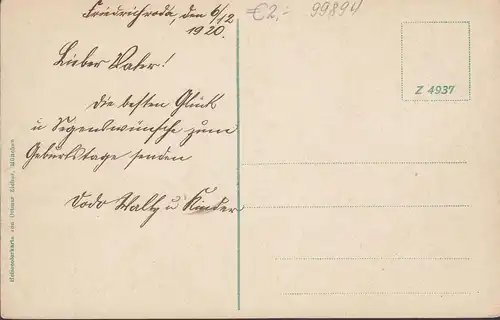 Friedrichroda, den 6/12
1920.
Lieber Vater!
Die besten Glück
u Segenswünsche zum
Geburtstage senden
Dodo Waltz u Kinder
€2,-
99894
Z 4937
Künstlerkarte von Ottmar Zieher, München